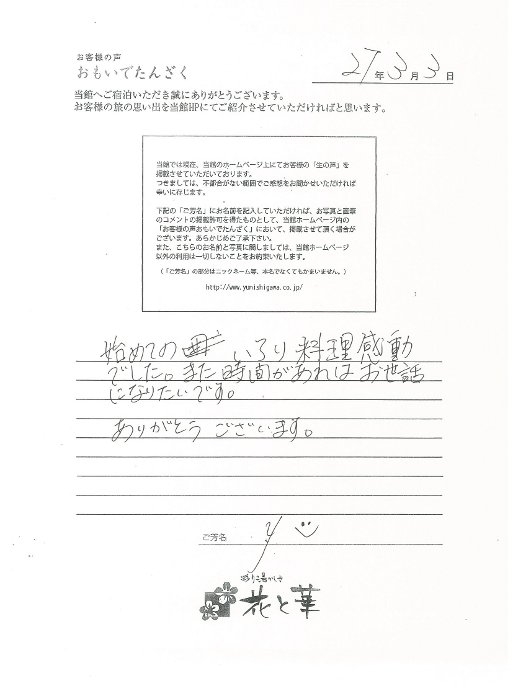 お客様の声
おもいでたんざく
27年3月3日
当館へご宿泊いただき誠にありがとうございます。
お客様の旅の思い出を当館HPにてご紹介させていただければと思います。
当館では現在、当館のホームページ上にてお客様の「生の声」を
掲載させていただいております。
つきましては、不都合がない範囲でご感想をお聞かせいただければ
幸いに存じます。
下記の「ご芳名」にお名前を記入していただければ、お写真と直筆
のコメントの掲載許可を得たものとして、当館ホームページ内の
「お客様の声おもいでたんざく」において、掲載させて頂く場合が
ございます。あらかじめご了承下さい。
また、こちらのお名前と写真に関しましては、当館ホームページ
以外の利用は一切しないことをお約束いたします。
（「ご芳名」の部分はニックネーム等、本名でなくてもかまいません。）
http://www.yunishigawa.co.jp/
始めての いろり料理感動
でした。また時間があればお世話
になりたいです。
ありがとうございます。
ご芳名 y
花と華